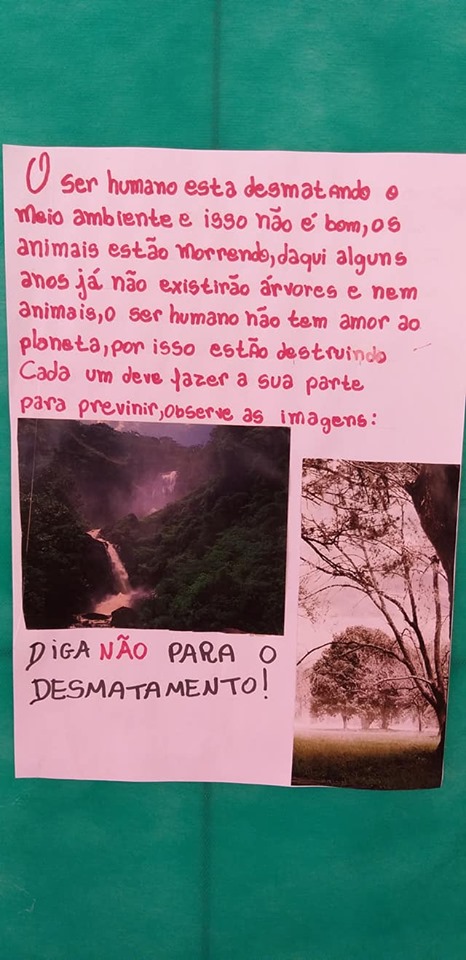 O ser humano esta desmatando o
meio ambiente e isso não é bom, os
animais estão morrendo, daqui alguns
anos já não existirão árvores e nem
animais, o ser humano não tem amor ao
planeta, por isso estão destruindo
Cada um deve fazer a sua parte
para previnir, observe as imagens:
DIGA NÃO PARA O
DESMATAMENTO!